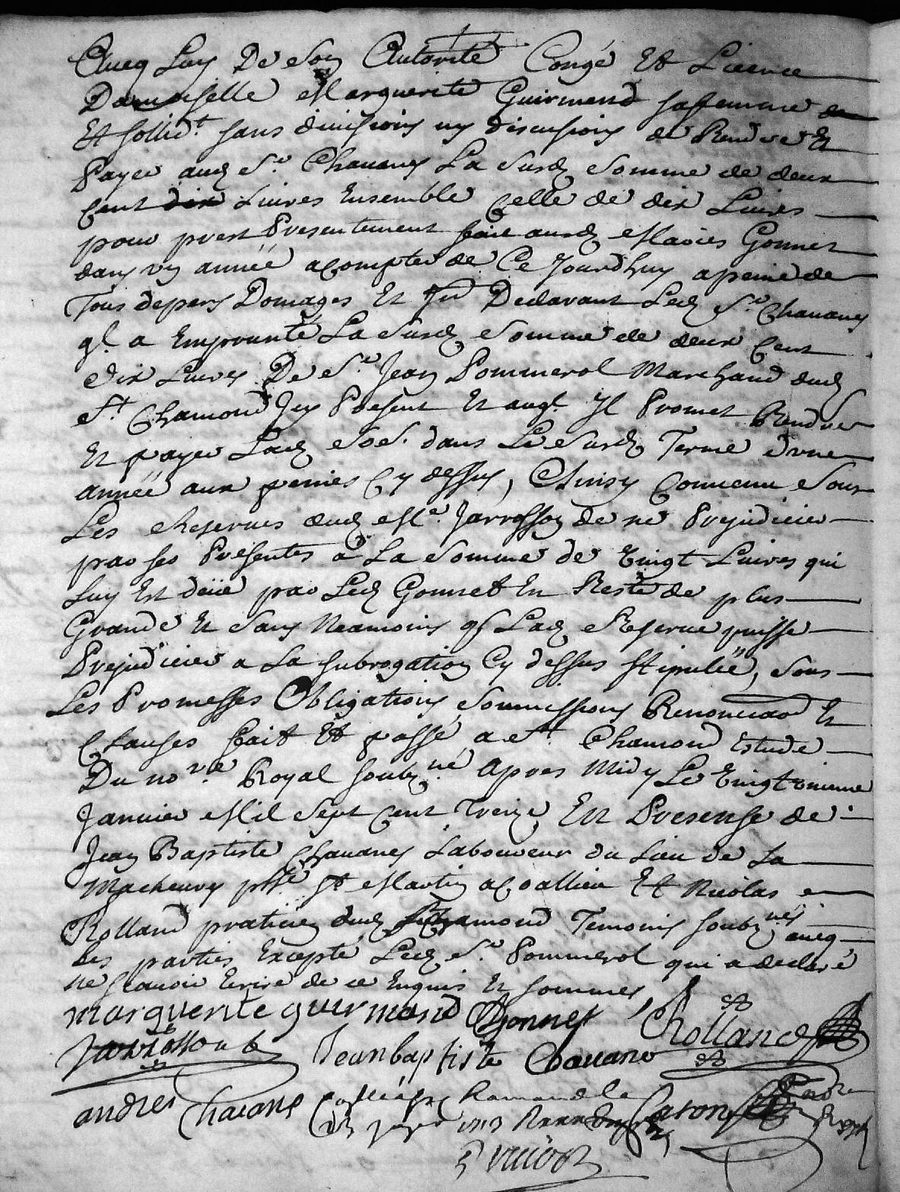 Avecq Luy De Son Autorité Congé Et Licence
Damoiselle Marguerite Guirmend sa femme
Et sollidt sans division ny discussion de Rendre Et
Payer audt Sr Chavanes La Susd Somme de deux
Cent dix Livres Ensemble Celle de dix Livres
pour prest Presentement fait ausd Maries Gonnet
dans un année a compter de Ce Jourdhuy a peine de
Tous depens Domages Et Declarant Led Sr Chavanes
ql a Emprunté La Susd Somme de deux Cent
Dix Livres De Sr Jean Pommerol Marchand dud
St Chamond Icy Present Et auql Il Promet Rendre
Et payer Lad So. dans Le Susd Terme d'une
année aux peines Cy dessus, Ainsy Convenu Sous
Les Reserves dud Me Jarrosson de ne Prejudicier
par ses Presentes a La Somme de Vingt Livres qui
Luy Est deüe par Led Gonnet En Reste de plus
Grande Et Sans Neamoins q Lad Reserve puisse
Prejudicier a La subrogation Cy dessus stipulée, Sous
Les Promesses Obligations, Soumissions Renonciaon Et
Clauses fait Et passé a St Chamond Estude
Du nore Royal soubzné Apres Midy Le Vingt
Janvier Mil Sept Cent Treize En Presense de
Jean Baptiste Chavanes Laboureur du Lieu de La
psse St Martin acoallieu Et Nicolas
Rolland praticien dud Chamond Temoins soubznés avecq
Les parties Excepté Led Sr Pommerol qui a declaré
ne scavoir Ecrire de ce Enquis Et sommés
marguerite guermand Gonnet Rolland
Jarrosson Jean baptiste Chavane
andre Chavane